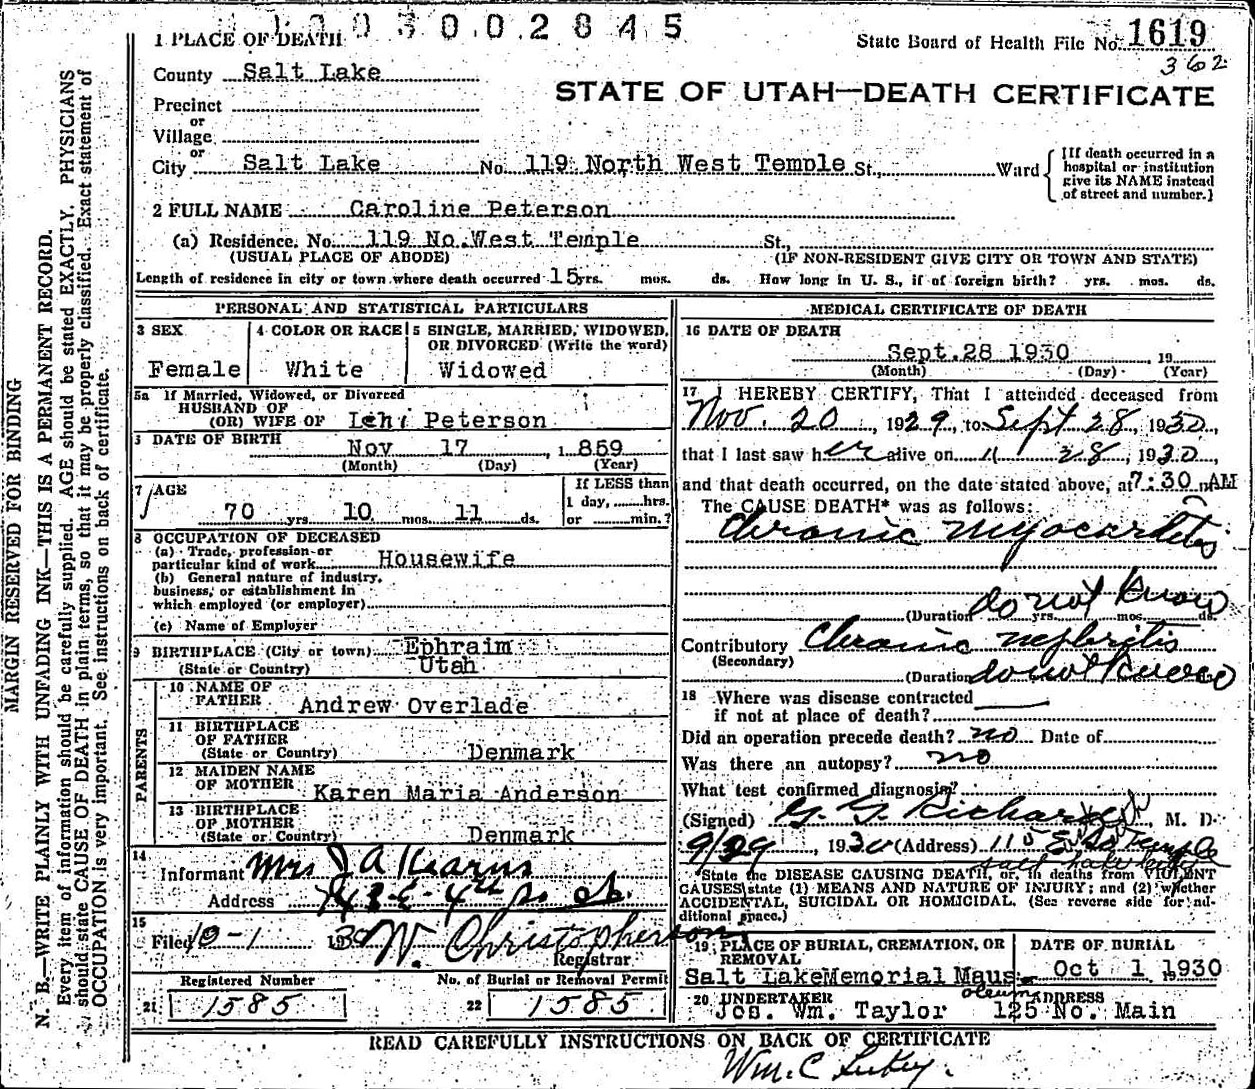 1 0 0 3 0 0 2 8 4 5
1 PLACE OF DEATH
State Board of Health File No. 1619
362
County Salt Lake
STATE OF UTAH—DEATH CERTIFICATE
Precinct
or
Village
or
City Salt Lake No. 119 North West Temple St., Ward
[If death occurred in a
hospital or institution
give its NAME instead
of street and number.]
2 FULL NAME Caroline Peterson
(a) Residence. No. 119 No. West Temple St.,
(USUAL PLACE OF ABODE) (IF NON-RESIDENT GIVE CITY OR TOWN AND STATE)
Length of residence in city or town where death occurred 15 yrs. mos. ds. How long in U. S., if of foreign birth? yrs. mos. ds.
PERSONAL AND STATISTICAL PARTICULARS
3 SEX
Female
4 COLOR OR RACE
White
5 SINGLE, MARRIED, WIDOWED,
OR DIVORCED (Write the word)
Widowed
5a If Married, Widowed, or Divorced
HUSBAND OF
(OR) WIFE OF Lehi Peterson
DATE OF BIRTH Nov 17, 1859
(Month) (Day) (Year)
7 AGE
70 yrs. 10 mos. 11 ds.
If LESS than
1 day, hrs.
or min.?
8 OCCUPATION OF DECEASED
(a) Trade, profession or
particular kind of work Housewife
(b) General nature of industry,
business, or establishment in
which employed (or employer)
(c) Name of Employer
9 BIRTHPLACE (City or town) Ephraim
(State or Country) Utah
PARENTS
10 NAME OF
FATHER Andrew Overlade
11 BIRTHPLACE
OF FATHER
(State or Country) Denmark
12 MAIDEN NAME
OF MOTHER Karen Maria Anderson
13 BIRTHPLACE
OF MOTHER
(State or Country) Denmark
14
Informant Mrs J A Kearns
Address
15
Filed 10-1 1930 W. Christopherson
Registrar
Registered Number
21 1585
No. of Burial or Removal Permit
22 1585
MEDICAL CERTIFICATE OF DEATH
16 DATE OF DEATH
Sept. 28 1930, 19
(Month) (Day) (Year)
17 I HEREBY CERTIFY, That I attended deceased from
Nov. 20, 1929, to Sept 28, 1930,
that I last saw her alive on 11 28, 1930,
and that death occurred, on the date stated above, at 7:30 m AM
The CAUSE DEATH* was as follows:
Chronic myocarditis
(Duration do not know yrs. mos. ds.
Contributory Chronic nephritis
(Secondary)
(Duration do not know
18 Where was disease contracted
if not at place of death?
Did an operation precede death? no Date of
Was there an autopsy? no
What test confirmed diagnosis?
(Signed) G. G. Richards, M. D.
9/29, 1930 (Address) 115 E. So Temple
Salt Lake City
State the DISEASE CAUSING DEATH, or, in deaths from VIOLENT
CAUSES state (1) MEANS AND NATURE OF INJURY; and (2) whether
ACCIDENTAL, SUICIDAL OR HOMICIDAL. (See reverse side for ad-
ditional space.)
19 PLACE OF BURIAL, CREMATION, OR
REMOVAL
Salt Lake Memorial Maus-
oleum
DATE OF BURIAL
Oct 1, 1930
20 UNDERTAKER
Jos. Wm. Taylor
ADDRESS
125 No. Main
READ CAREFULLY INSTRUCTIONS ON BACK OF CERTIFICATE
Wm. C.
MARGIN RESERVED FOR BINDING
N. B.—WRITE PLAINLY WITH UNFADING INK—THIS IS A PERMANENT RECORD.
Every item of information should be carefully supplied. AGE should be stated EXACTLY. PHYSICIANS
should state CAUSE OF DEATH in plain terms, so that it may be properly classified. Exact statement of
OCCUPATION is very important. See instructions on back of certificate.